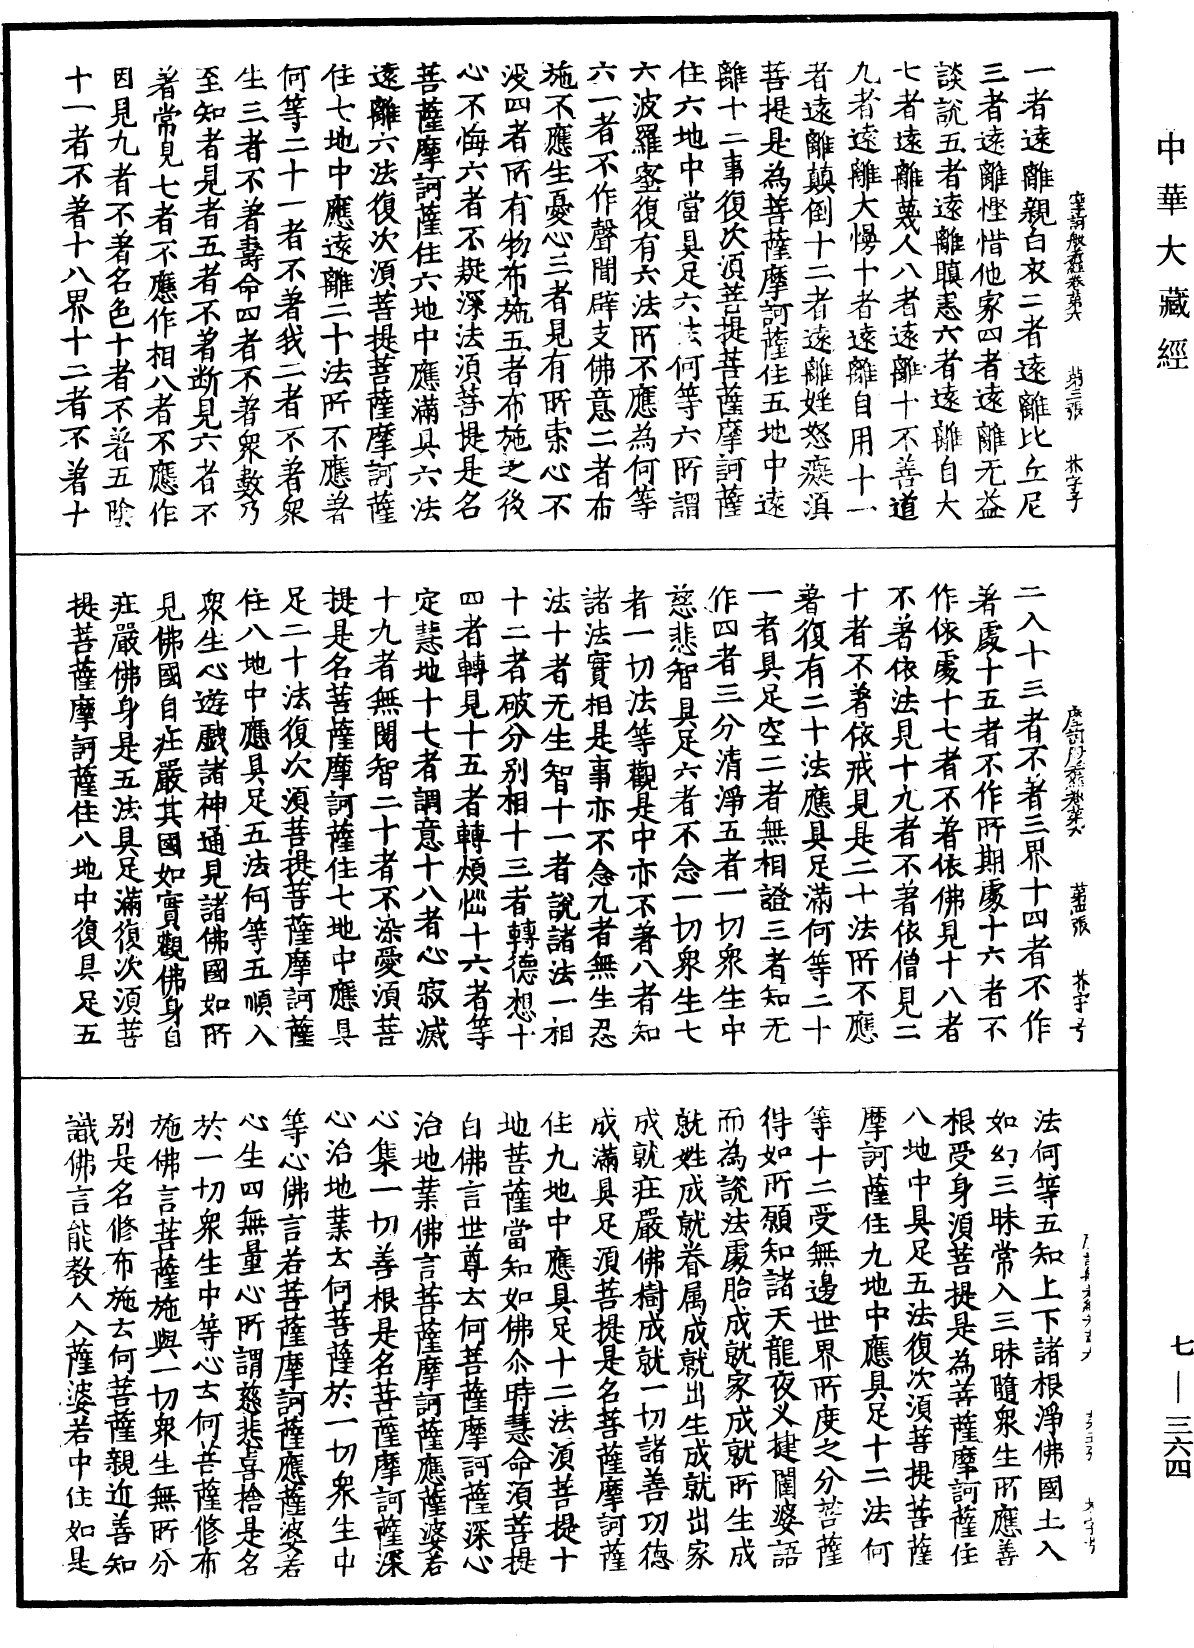 中華大藏經
一者遠離親白衣二者遠離比丘尼
三者遠離慳惜他家四者遠離无益
談說五者遠離瞋恚六者遠離自大
七者遠離蔑人八者遠離十不善道
九者遠離大慢十者遠離自用十一
者遠離顛倒十二者遠離婬怒癡湏
菩提是為菩薩摩訶薩住五地中遠
離十二事復次湏菩提菩薩摩訶薩
住六地中當具足六法何等六所謂
六波羅蜜復有六法所不應為何等
六一者不作聲聞辟支佛意二者布
施不應生憂心三者見有所索心不
没四者所有物布施五者布施之後
心不悔六者不疑深法湏菩提是名
菩薩摩訶薩住六地中應滿具六法
遠離六法復次湏菩提菩薩摩訶薩
住七地中應遠離二十法所不應著
何等二十一者不著我二者不著衆
生三者不著壽命四者不著衆數乃
至知者見者五者不著断見六者不
著常見七者不應作相八者不應作
因見九者不著名色十者不著五陰
十一者不著十八界十二者不著十
二入十三者不著三界十四者不作
著處十五者不作所期處十六者不
作依處十七者不著依佛見十八者
不著依法見十九者不著依僧見二
十者不著依戒見是二十法所不應
著復有二十法應具足滿何等二十
一者具足空二者無相證三者知无
作四者三分清淨五者一切衆生中
慈悲智具足六者不念一切衆生七
者一切法等觀是中亦不著八者知
諸法實相是事亦不念九者無生忍
法十者无生智十一者說諸法一相
十二者破分别相十三者轉德想十
四者轉見十五者轉煩惱十六者等
定慧地十七者調意十八者心寂滅
十九者無閡智二十者不染愛湏菩
提是名菩薩摩訶薩住七地中應具
足二十法復次湏菩提菩薩摩訶薩
住八地中應具足五法何等五順入
衆生心遊戲諸神通見諸佛國如所
見佛國自莊嚴其國如實觀佛身自
莊嚴佛身是五法具足滿復次湏菩
提菩薩摩訶薩住八地中復具足五
法何等五知上下諸根淨佛國土入
如幻三昧常入三昧隨衆生所應善
根受身湏菩提是為菩薩摩訶薩住
八地中具足五法復次湏菩提菩薩
摩訶薩住九地中應具足十二法何
等十二受無邊世界所度之分菩薩
得如所願知諸天龍夜叉揵闥婆語
而為說法處胎成就家成就所生成
就姓成就眷属成就出生成就出家
成就莊嚴佛樹成就一切諸善功德
成滿具足湏菩提是名菩薩摩訶薩
住九地中應具足十二法湏菩提十
地菩薩當知如佛尒時慧命湏菩提
白佛言世尊云何菩薩摩訶薩深心
治地業佛言菩薩摩訶薩應薩婆若
心集一切善根是名菩薩摩訶薩深
心治地業云何菩薩於一切衆生中
等心佛言若菩薩摩訶薩應薩婆若
心生四無量心所謂慈悲喜捨是名
於一切衆生中等心云何菩薩修布
施佛言菩薩施與一切衆生無所分
别是名修布施云何菩薩親近善知
識佛言能教人入薩婆若中住如是
七—三六四